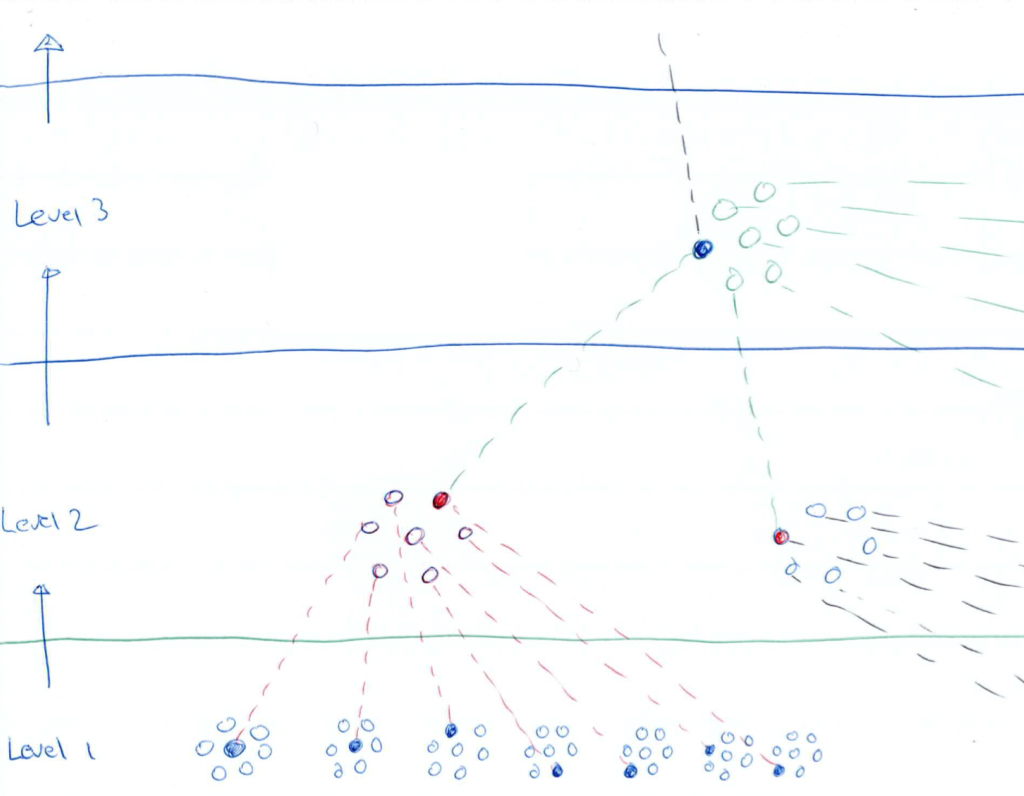 Level 3
Level 2
Level 1